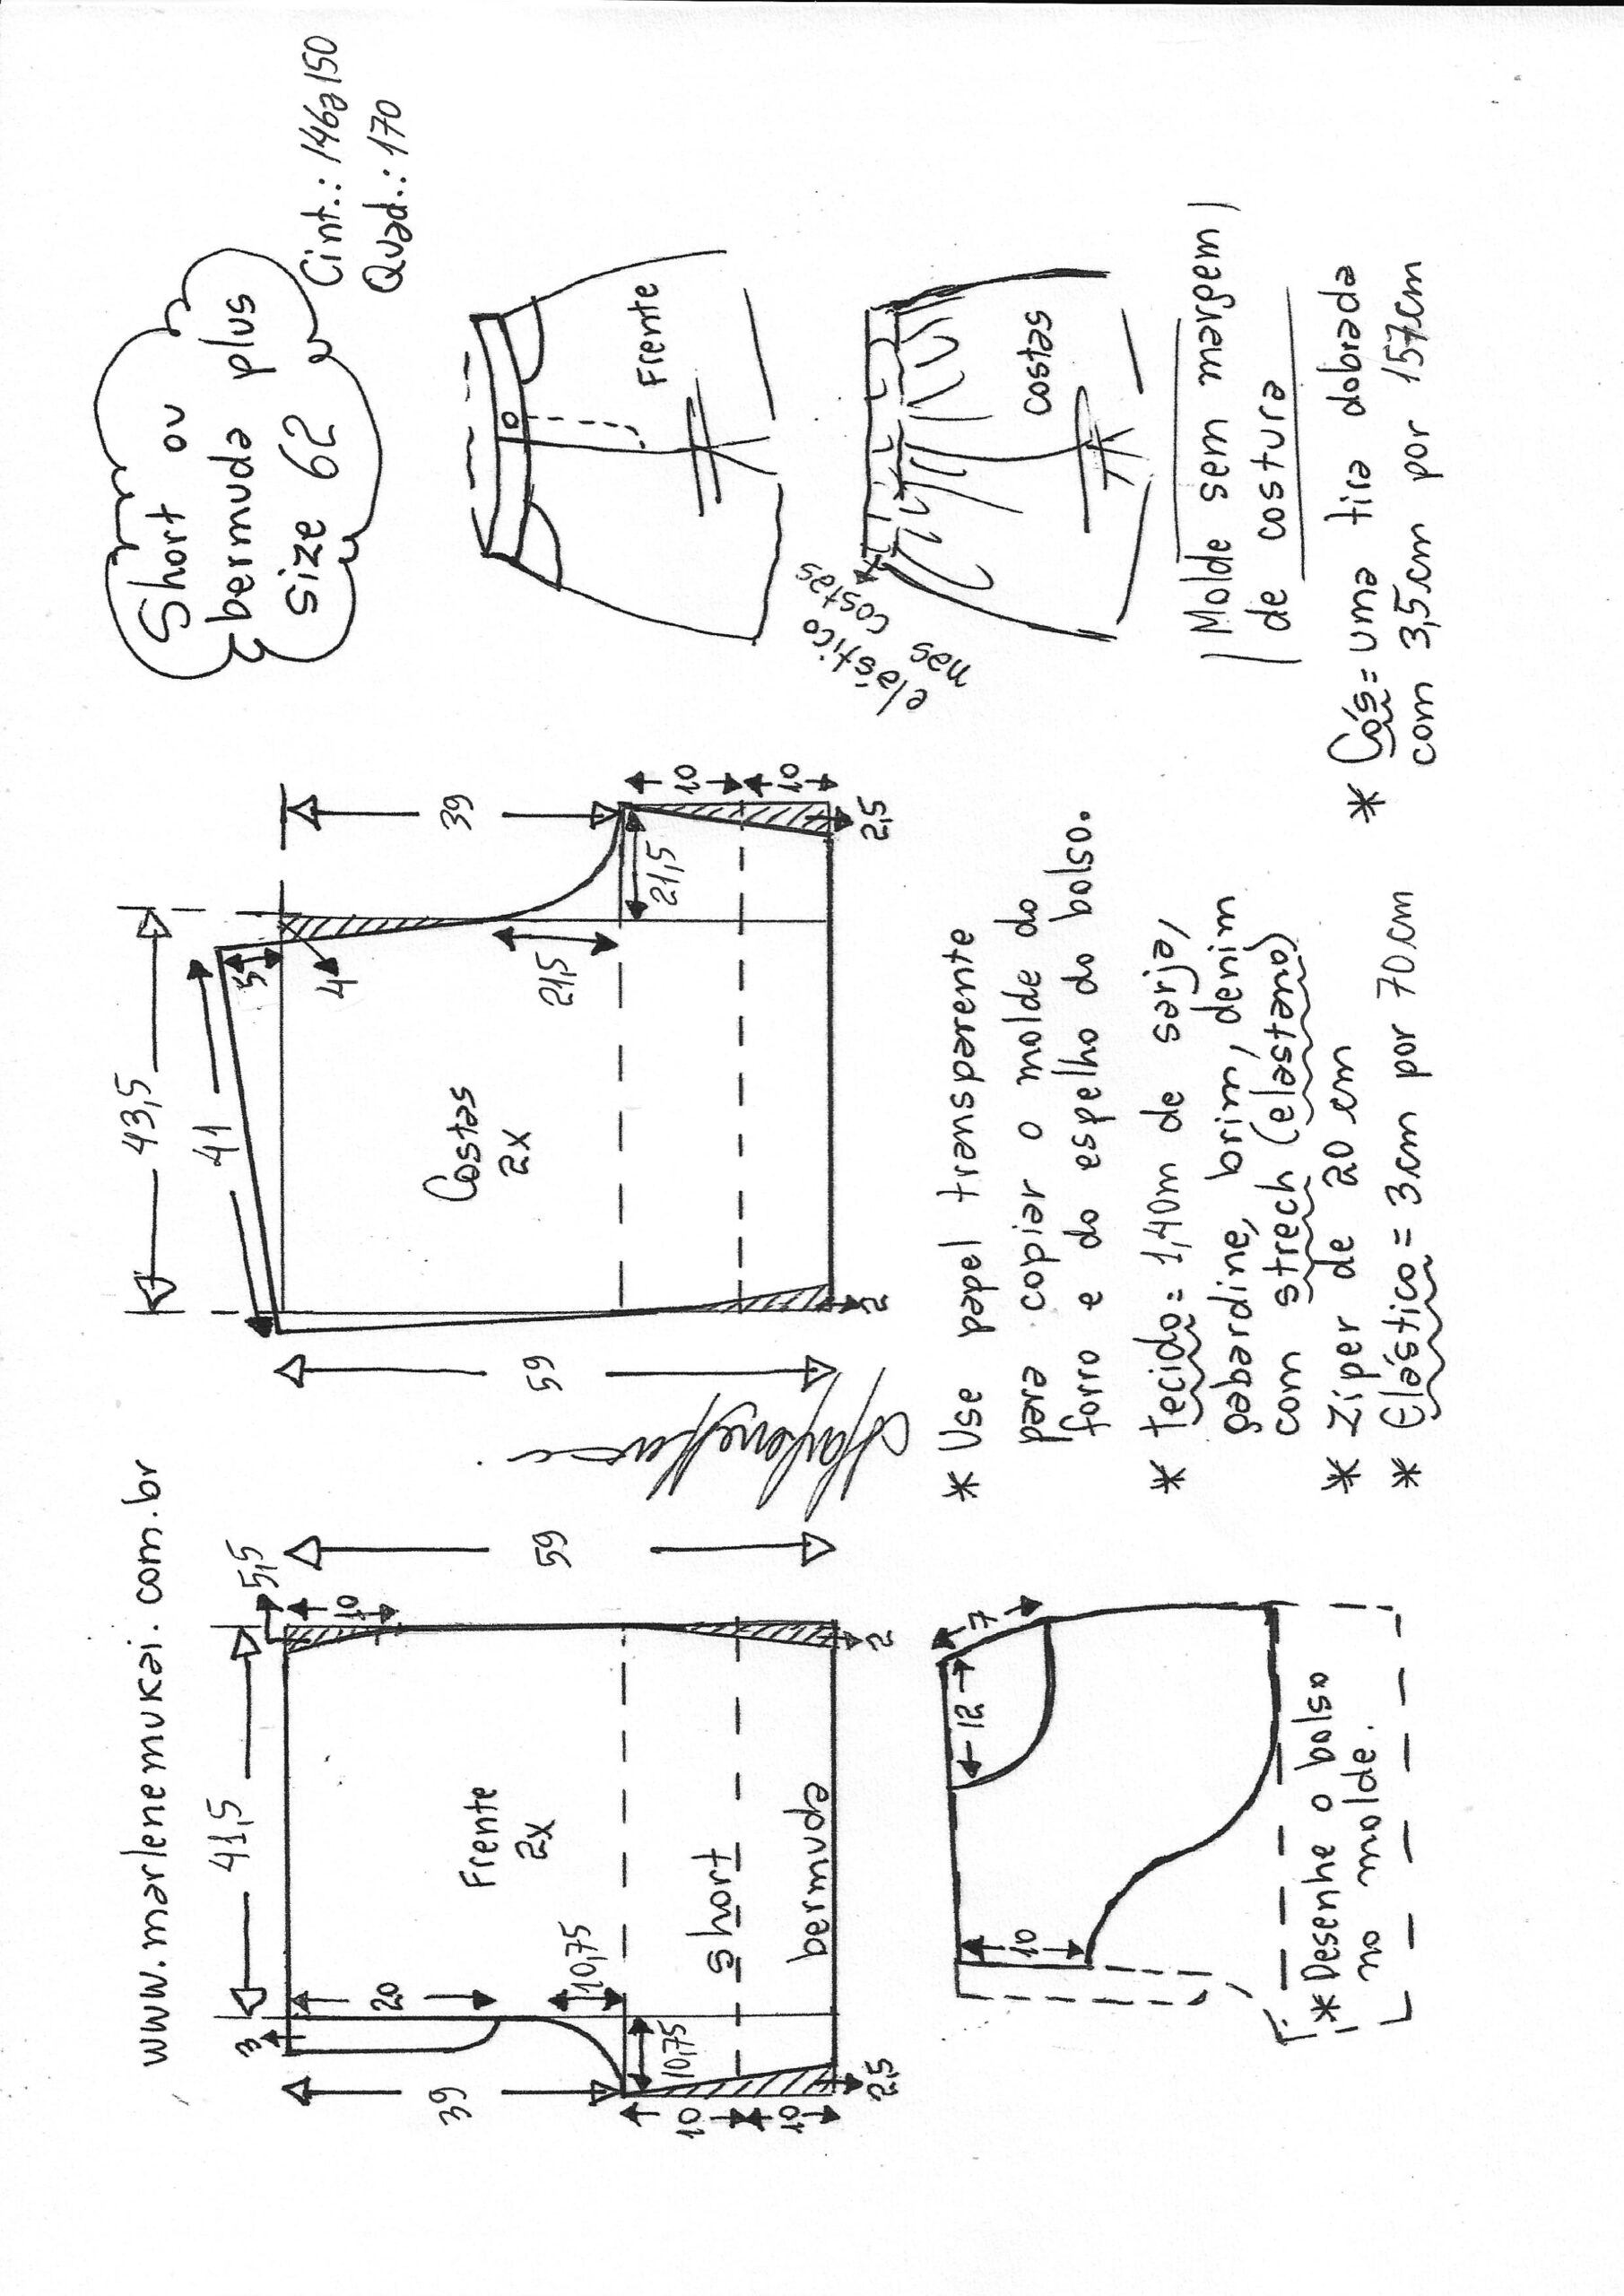 www.marlenemukai.com.br
Short ou
bermuda plus
size 62
Cint.: 146a150
Quad.: 170
41,5
5,5
3
20
10
39
59
Frente
2x
10,75
10,75
short
bermuda
10
10
2,5
2
43,5
41
5
4
39
59
Costas
2x
21,5
21,5
10
10
2,5
2
Frente
elástico
nas costas
costas
| Molde sem margem |
| de costura
* Cós = uma tira dobrada
com 3,5cm por 157cm
* Use papel transparente
para copiar o molde do
forro e do espelho do bolso.
* Tecido = 1,40m de sarja,
gabardine, brim, denim
com strech (elastano)
* Zíper de 20 cm
* Elástico = 3cm por 70cm
7
12
10
* Desenhe o bolso
no molde.